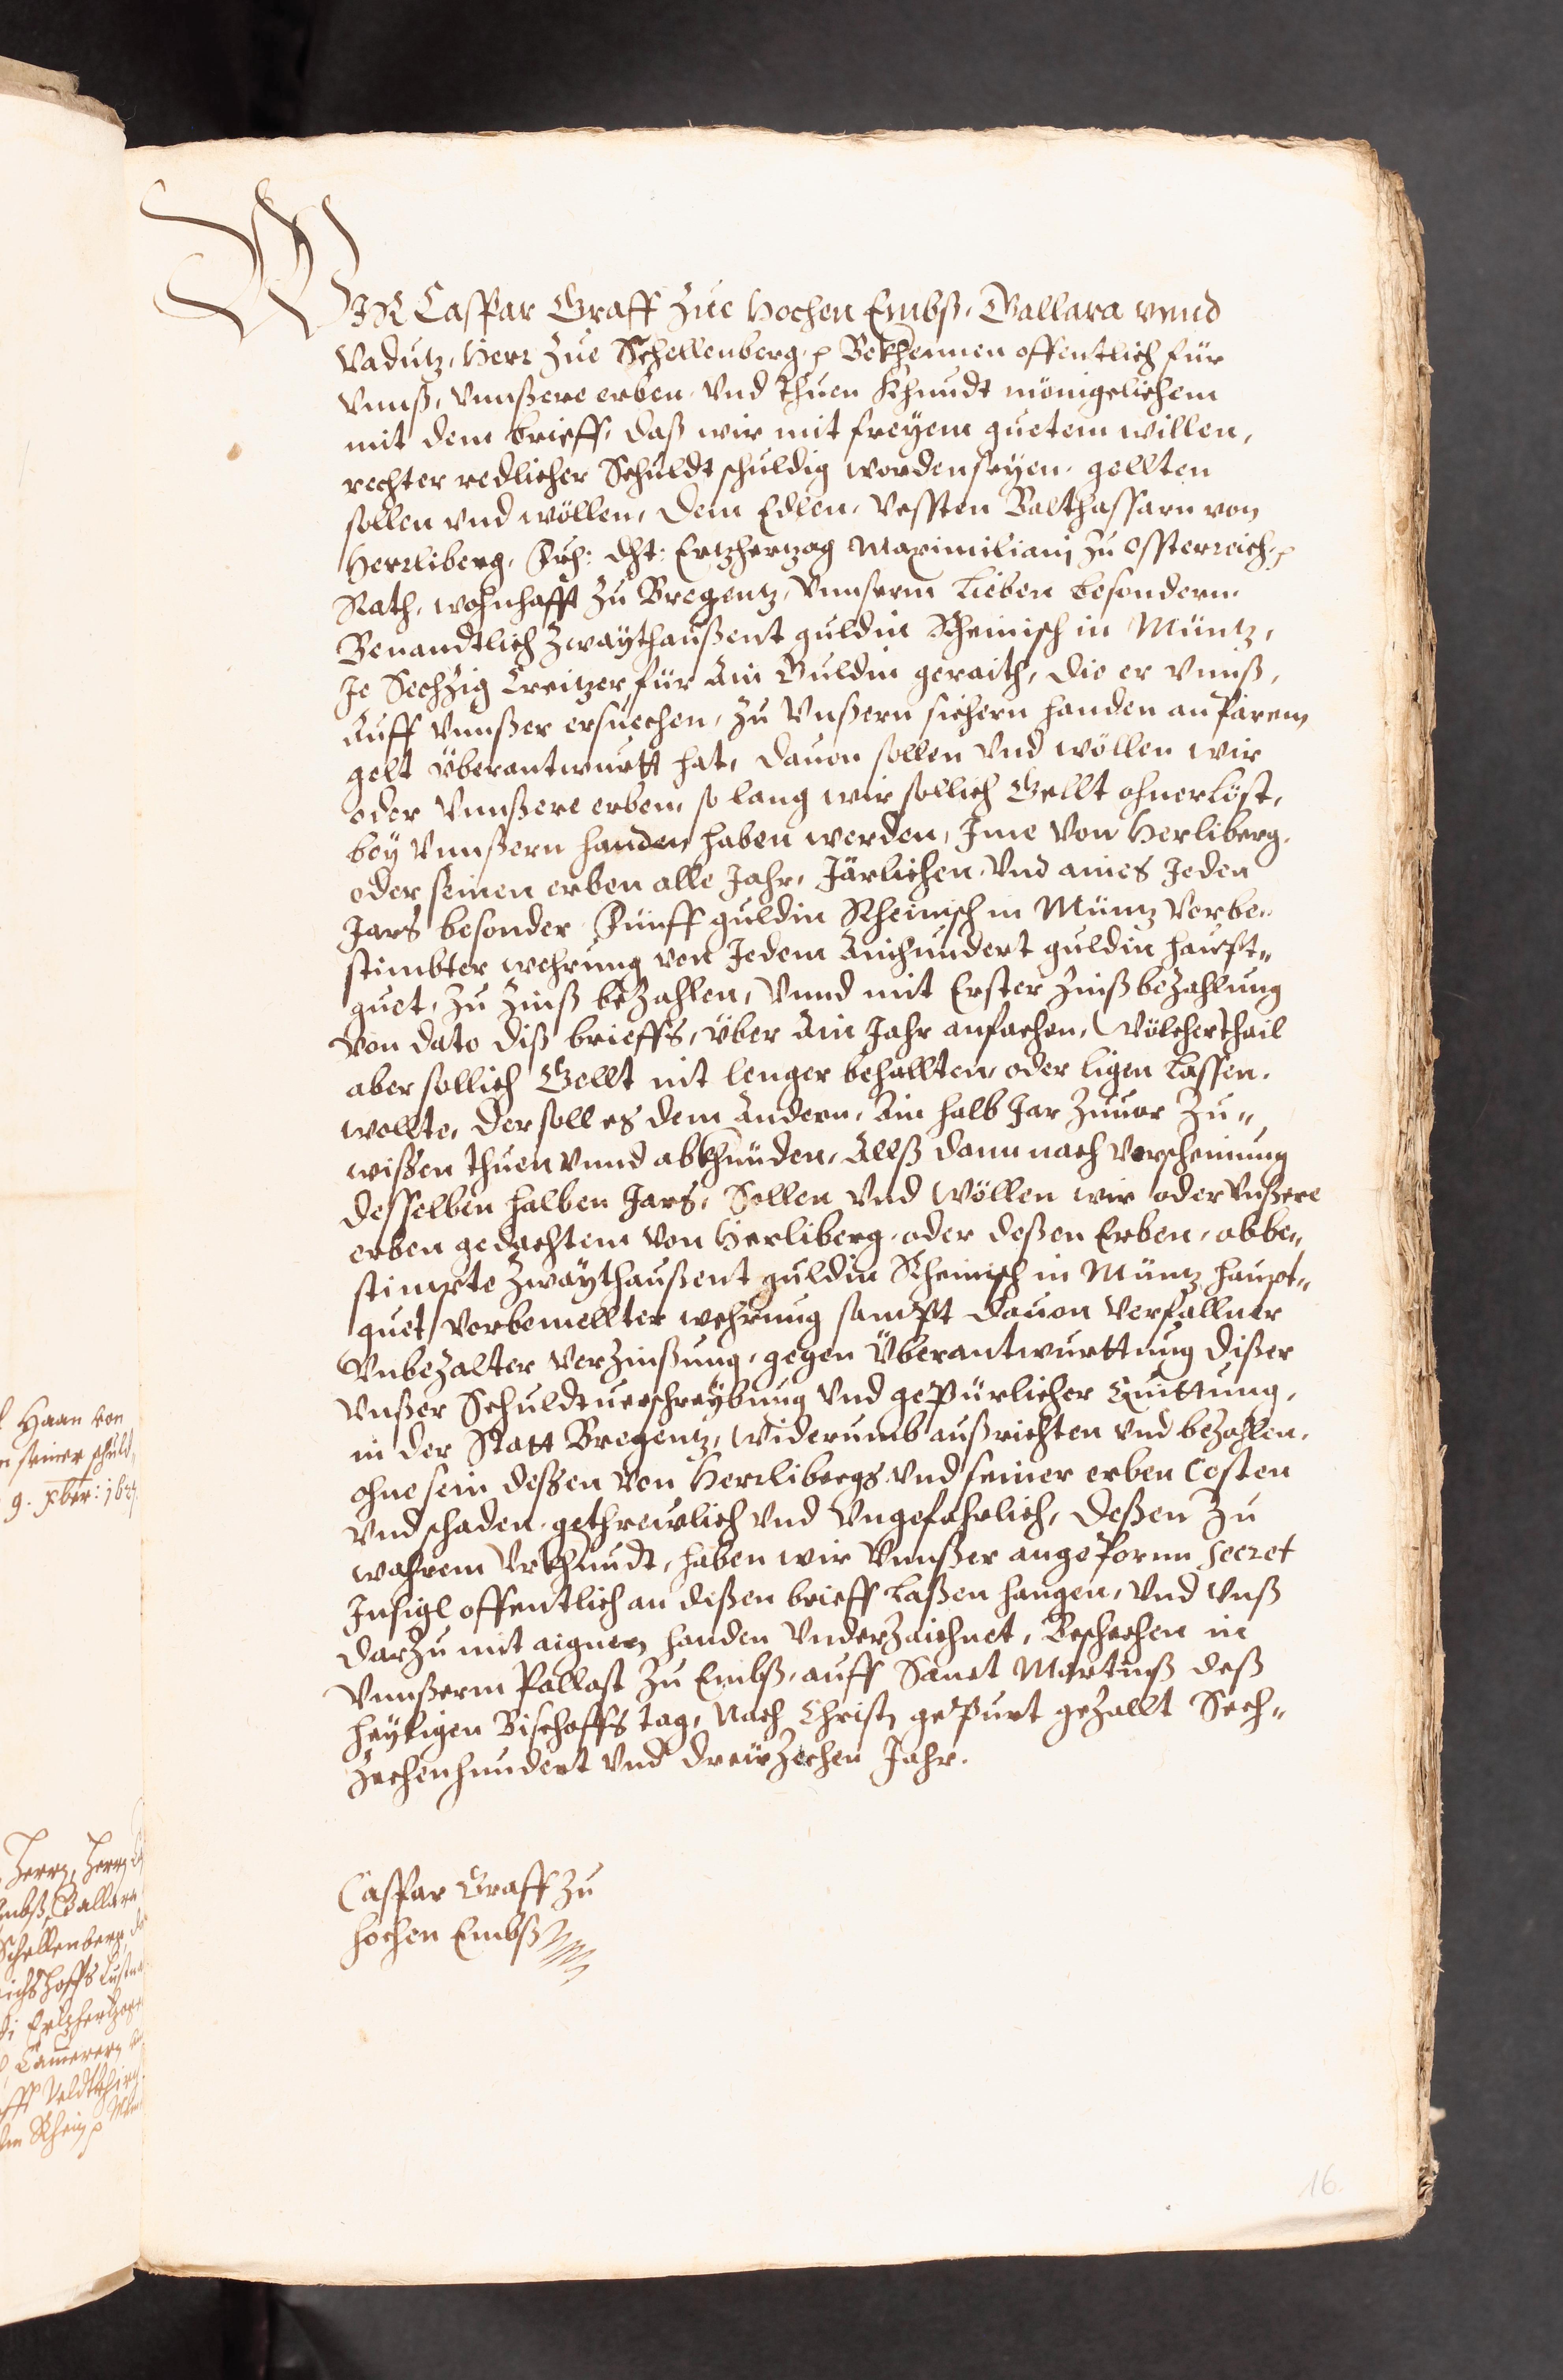 WIR Caspar Graff zue Hochen Embß, Gallara vnnd
Vadutz, Herr zue Schellenberg, p Bekhennen offentlich für
Vnnß, Vnnßere erben, Vnd thuen Khundt mönigelichem
mit dem brieff, daß wir mit freyem guetem willen,
rechter redlicher Schuldt schuldig worden seyen, gellten
sollen vnd wöllen, dem Edlen, Vessten Balthassarn von
Herrliberg, Frh: dht: Ertzhertzog Maximiliani zu Ossterreich, p
Rath, wohnhafft zu Bregentz, Vnnserm lieben besondern
Benandtlich zwaythaußent guldin Rheinisch in Müntz,
Je Sechzig Creitzer für Ain Guldin geraith, die er Vnnß,
Auff Vnnßer ersuechen, zu Vnßern sichern handen an parem
gelt Überantwurtt hat, dauon sollen Vnd wöllen wir
oder Vnnßere erben, so lang wir sollich Gellt ohnerlöst,
bey Vnnßern handen haben werden, Ime Von Herliberg,
oder seinen erben alle Jahr, Järlichen, Vnd aines Jeden
Jars besonder Fünff guldin Rheinisch in Müntz Vorbe„
stimbter wehrung von Jedem Ainhundert guldin haupt„
guet, zu zinß bezahlen, Vnnd mit Erster zinßbezahlung
Von dato diß brieffs, über Ain Jahr anfachen, Wölcher thail
aber sollich Gellt nit lenger behallten, oder ligen lassen
wollte, der soll es dem Andern, Ain halb Jar zuuor zu„
wißen thuen Vnnd abkhünden, Allß dann nach Verscheinung
desselben halben Jars, Sollen Vnd Wöllen wir oder Vnßere
erben gedachtem Von Herliberg, oder deßen Erben, obbe„
stimpte zwaythaußent guldin Rheinisch in Müntz haupt„
guet, Vorbemellter wehrung sampt dauon Verfallner
Vnbezalter Verzinßung, gegen Überantwurttung dißer
Vnßer Schuldtuerschreybung Vnd gepürlicher Quittung,
in der Statt Bregentz, Widerumb außrichten Vnd bezahlen,
ohne sein deßen Von Herrlibergs Vnd seiner erben Costen
Vnd schaden, gethrewlich Vnd Vngefahrlich, deßen zu
wahrem Vrkhundt, haben wir Vnnßer angeporen Secret
Insigl offentlich an dißen brieff laßen hangen, Vnd Vnß
darzu mit aignen handen Vnderzaichnet, Beschechen in
Vnnßerm Pallast zu Embß, auff Sanct Martinß deß
heyligen Bischoffs tag, Nach Christi gepurt gezallt Sech„
zechenhundert Vnd dreüzechen Jahr.
Caspar Graff zu
Hochen Embß
16.
Haan von
seiner schuld
9. xber: 16
Herrn, Herrn
Embß, Gallara
Schellenberg,
Ertzhertzog
Camerern
Veldtkhirch
Rhein p